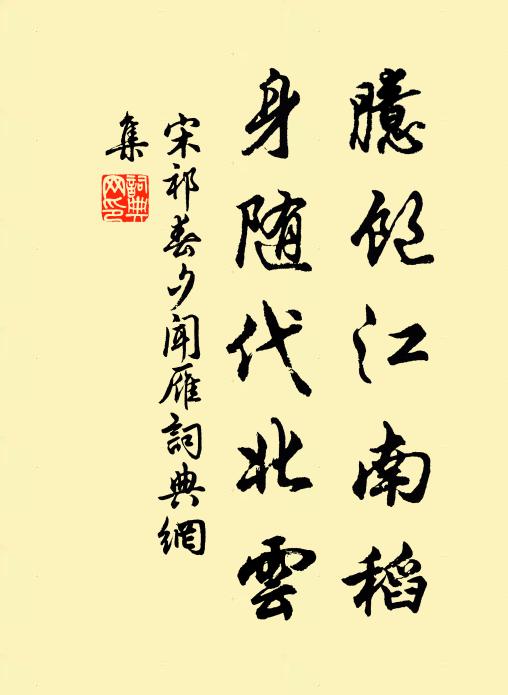 臆飽江南稻
身随代北雲
宋祁春夕闻雁詞典網
集
詞典網印